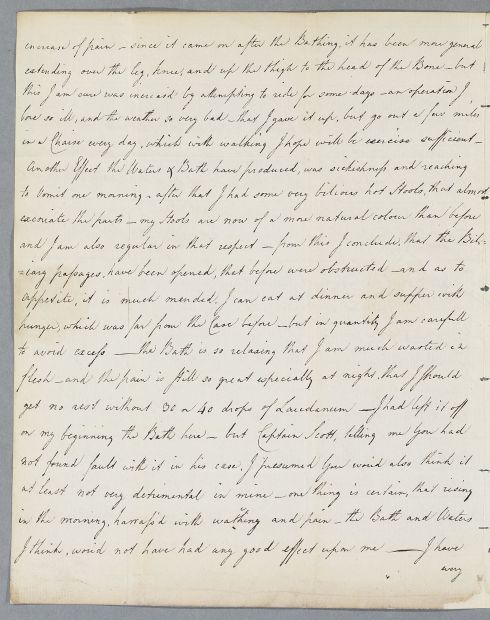 increase of pain – since it came on after the Bathing, it has been more general
extending over the leg, knee, and up the thigh to the head of the Bone – but
this I am sure was increasd by attempting to ride for some days – an operation I
bore so ill, and the weather so very bad – that I gave it up, but go out a few miles
in a Chaise every day, which with walking I hope will be exercise sufficient –
Another Effect the Waters & Bath have produced, was sickishness and reaching
to Vomit one morning – after that I had some very bilious hot Stools, that almost
excoriate the parts – my Stools are now of a more natural colour than before
and I am also regular in that respect – from this I conclude, that the Bil-
-iary passages, have been opened, that before were obstructed – and as to
appetite, it is much mended, I can eat at dinner and supper with
hunger, which was far from the Case before – but in quantity I am carefull
to avoid excess – the Bath is so relaxing that I am much wasted in
flesh – and the pain is still so great especially at night, that I should
get no rest without 30 or 40 drops of Laudanum – I had left it off
on my beginning the Bath here – but Captain Scott, telling me You had
not found fault with it in his case, I presumed You woud also think it
at least not very detrimental in mine – one thing is certain, that rising
in the morning, harrassd with and pain – the Bath and Waters
I think, woud not have had any good effect upon me – I have
very